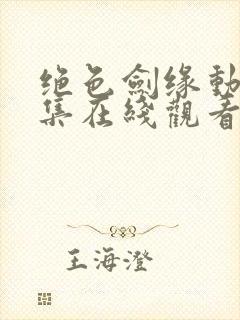 绝色劍缘動
集在綫觀看
王海澄